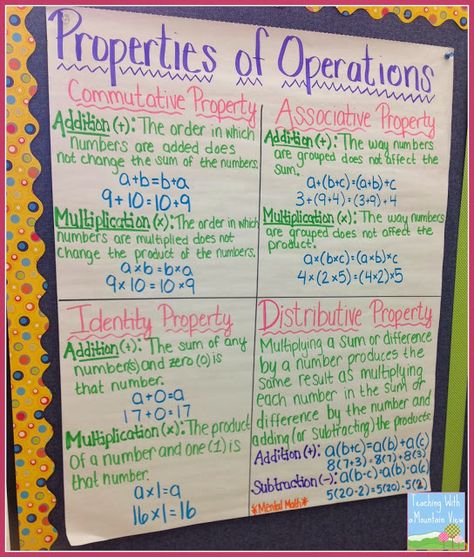 Properties of Operations
Commutative Property
Addition (+): The order in which
numbers are added does
not change the sum of the numbers.
a+b=b+a
9+10=10+9
Multiplication (x): The order in which
numbers are multiplied does not
change the product of the numbers.
a×b=b×a
9×10=10×9
Associative Property
Addition (+): The way numbers
are grouped does not affect the
sum.
a+(b+c)=(a+b)+c
3+(9+4)=(3+9)+4
Multiplication (x): The way numbers
are grouped does not affect the
product.
a×(b×c)=(a×b)×c
4×(2×5)=(4×2)×5
Identity Property
Addition (+): The sum of any
number(s) and zero (0) is
that number.
a+0=a
17+0=17
Multiplication (x): The product
of a number and one (1) is
that number.
a×1=a
16×1=16
Distributive Property
Multiplying a sum or difference
by a number produces the
same result as multiplying
each number in the sum or
difference by the number and
adding (or subtracting) the products
Addition (+): a(b+c)=a(b)+a(c)
8(7+3)=8(7)+8(3)
Subtraction (-): a(b-c)=a(b)-a(c)
5(20-2)=5(20)-5(2)
*Mental Math*
Teaching With
a Mountain View